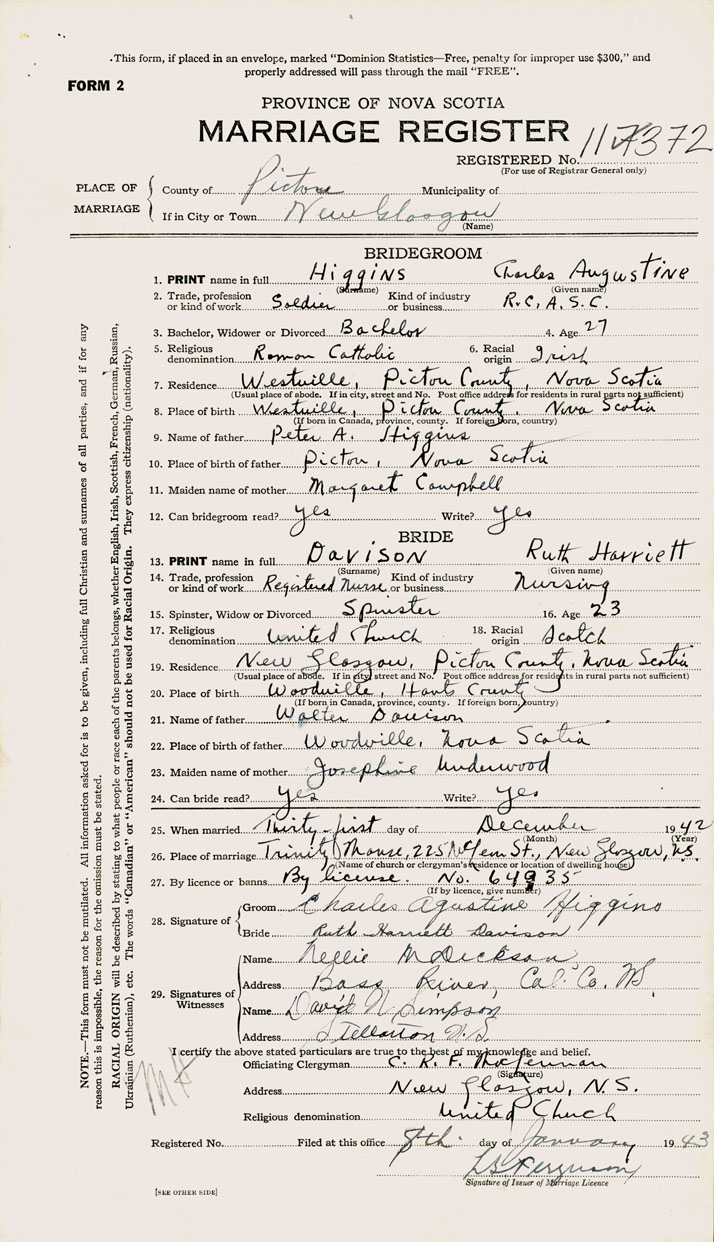 .This form, if placed in an envelope, marked "Dominion Statistics—Free, penalty for improper use $300," and
properly addressed will pass through the mail "FREE".
FORM 2
PROVINCE OF NOVA SCOTIA
MARRIAGE REGISTER
REGISTERED No. 372
(For use of Registrar General only)
PLACE OF MARRIAGE
County of Pictou Municipality of
If in City or Town New Glasgow
(Name)
BRIDEGROOM
1. PRINT name in full Higgins Charles Augustine
(Surname) (Given name)
2. Trade, profession or kind of work Soldier Kind of industry or business R.C.A.S.C.
3. Bachelor, Widower or Divorced Bachelor 4. Age 27
5. Religious denomination Roman Catholic 6. Racial origin Irish
7. Residence Westville, Pictou County, Nova Scotia
(Usual place of abode. If in city, street and No. Post office address for residents in rural parts not sufficient)
8. Place of birth Westville, Pictou County, Nova Scotia
(If born in Canada, province, county. If foreign born, country)
9. Name of father Peter A. Higgins
10. Place of birth of father Pictou, Nova Scotia
11. Maiden name of mother Margaret Campbell
12. Can bridegroom read? Yes Write? Yes
BRIDE
13. PRINT name in full Davison Ruth Harriett
(Surname) (Given name)
14. Trade, profession or kind of work Registered Nurse Kind of industry or business Nursing
15. Spinster, Widow or Divorced Spinster 16. Age 23
17. Religious denomination United Church 18. Racial origin Scotch
19. Residence New Glasgow, Pictou County, Nova Scotia
(Usual place of abode. If in city street and No. Post office address for residents in rural parts not sufficient)
20. Place of birth Woodville, Hants County
(If born in Canada, province, county. If foreign born, country)
21. Name of father Walter Davison
22. Place of birth of father Woodville, Nova Scotia
23. Maiden name of mother Josephine Underwood
24. Can bride read? Yes Write? Yes
25. When married Thirty-first day of December 1942
(Month) (Year)
26. Place of marriage Trinity Manse, 225 St., New Glasgow, N.S.
(Name of church or clergyman's residence or location of dwelling house)
27. By licence or banns By license. No. 64935
(If by licence, give number)
28. Signature of
Groom Charles Agustine Higgins
Bride Ruth Harriett Davison
29. Signatures of Witnesses
Name Nellie M Dickson
Address Bass River, Col. Co. N.S.
Name David N. Simpson
Address Stellarton N.S.
I certify the above stated particulars are true to the best of my knowledge and belief.
Officiating Clergyman C. R. F. MacLennan
(Signature)
Address New Glasgow, N.S.
Religious denomination United Church
Registered No. Filed at this office 8th day of January 1943
Ferguson
Signature of Issuer of Marriage Licence
[SEE OTHER SIDE]
NOTE.—This form must not be mutilated. All information asked for is to be given, including full Christian and surnames of all parties, and if for any
reason this is impossible, the reason for the omission must be stated.
RACIAL ORIGIN will be described by stating to what people or race each of the parents belongs, whether English, Irish, Scottish, French, German, Russian,
Ukrainian (Ruthenian), etc. The words "Canadian" or "American" should not be used for Racial Origin. They express citizenship (nationality).